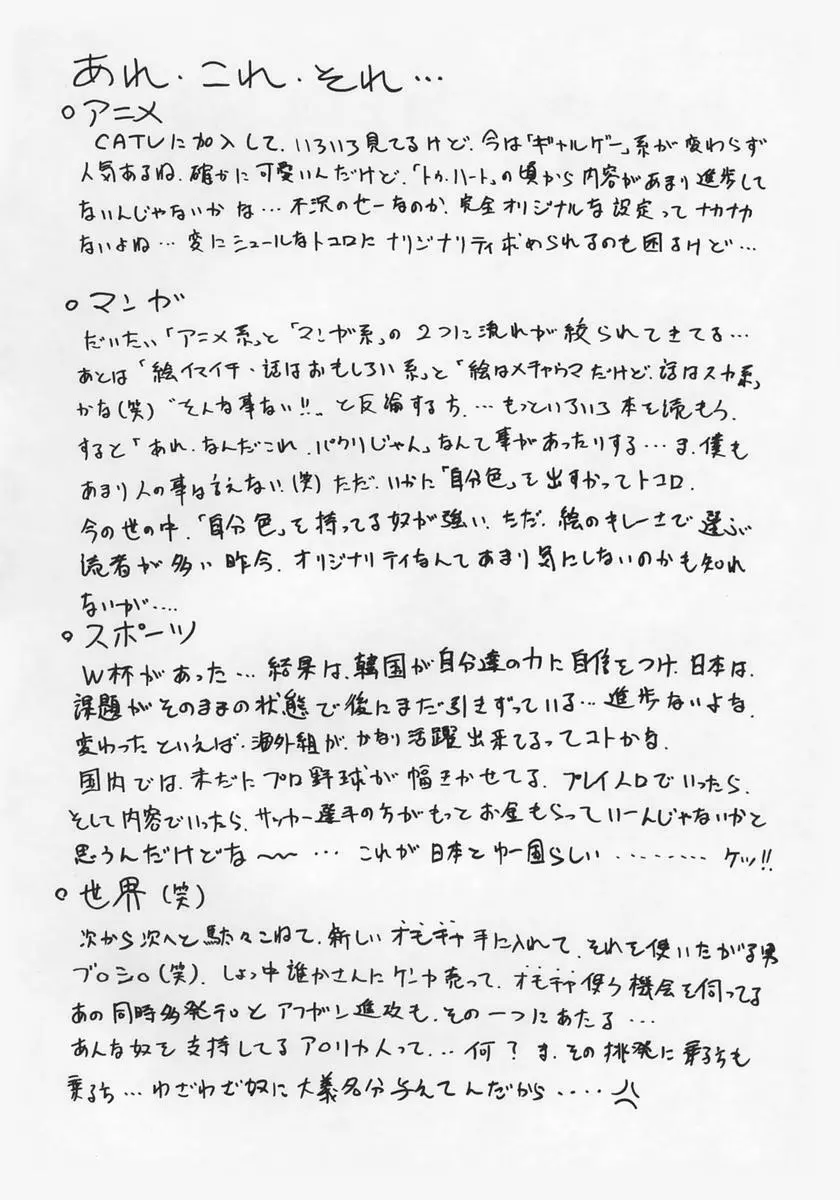 あれ・これ・それ…
○アニメ
CATVに加入して、いろいろ見てるけど、今は「ギャルゲー」系が変わらず
人気あるね。確かに可愛いんだけど、「トゥ・ハート」の頃から内容があまり進歩して
ないんじゃないかな…不況のせーなのか、完全オリジナルな設定ってナカナカ
ないよね…変にシュールなトコロにオリジナリティ求められるのも困るけど…
○マンガ
だいたい「アニメ系」と「マンガ系」の2つに流れが絞られてきてる…
あとは「絵イマイチ・話はおもしろい系」と「絵はメチャウマだけど、話はスカ系」
かな(笑)“そんな事ない!!”と反論する方、…もっといろいろ本を読もう。
すると「あれ、なんだこれ、パクリじゃん」なんて事があったりする…ま、僕も
あまり人の事は言えない、(笑)ただ、いかに「自分色」を出すかってトコロ。
今の世の中、「自分色」を持ってる奴が強い。ただ、絵のキレーさで選ぶ
読者が多い昨今、オリジナリティなんてあまり気にしないのかも知れ
ないが….
○スポーツ
W杯があった…結果は、韓国が自分達の力に自信をつけ、日本は、
課題がそのままの状態で後にまだ引きずっている…進歩ないよな。
変わったといえば、海外組が、かなり活躍出来てるってコトかな。
国内では、未だにプロ野球が幅きかせてる、プレイ人口でいったら、
そして内容でいったら、サッカー選手の方がもっとお金もらっていーんじゃないかと
思うんだけどな〜〜…これが日本とゆー国らしい………ケッ!!
○世界(笑)
次から次へと駄々こねて、新しいオモチャ手に入れて、それを使いたがる男
ブ○シ○(笑)、しょっ中誰かさんにケンカ売って、オモチャ使う機会を伺ってる
あの同時多発テロとアフガン進攻も、その一つにあたる…
あんな奴を支持してるア○リカ人って…何?ま、その挑発に乗る方も
乗る方…わざわざ奴に大義名分与えてんだから….